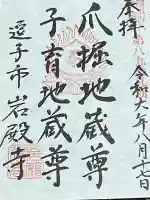 奉拝
令和六年八月十七日
爪掘地蔵尊
子育地蔵尊
逗子市岩殿寺